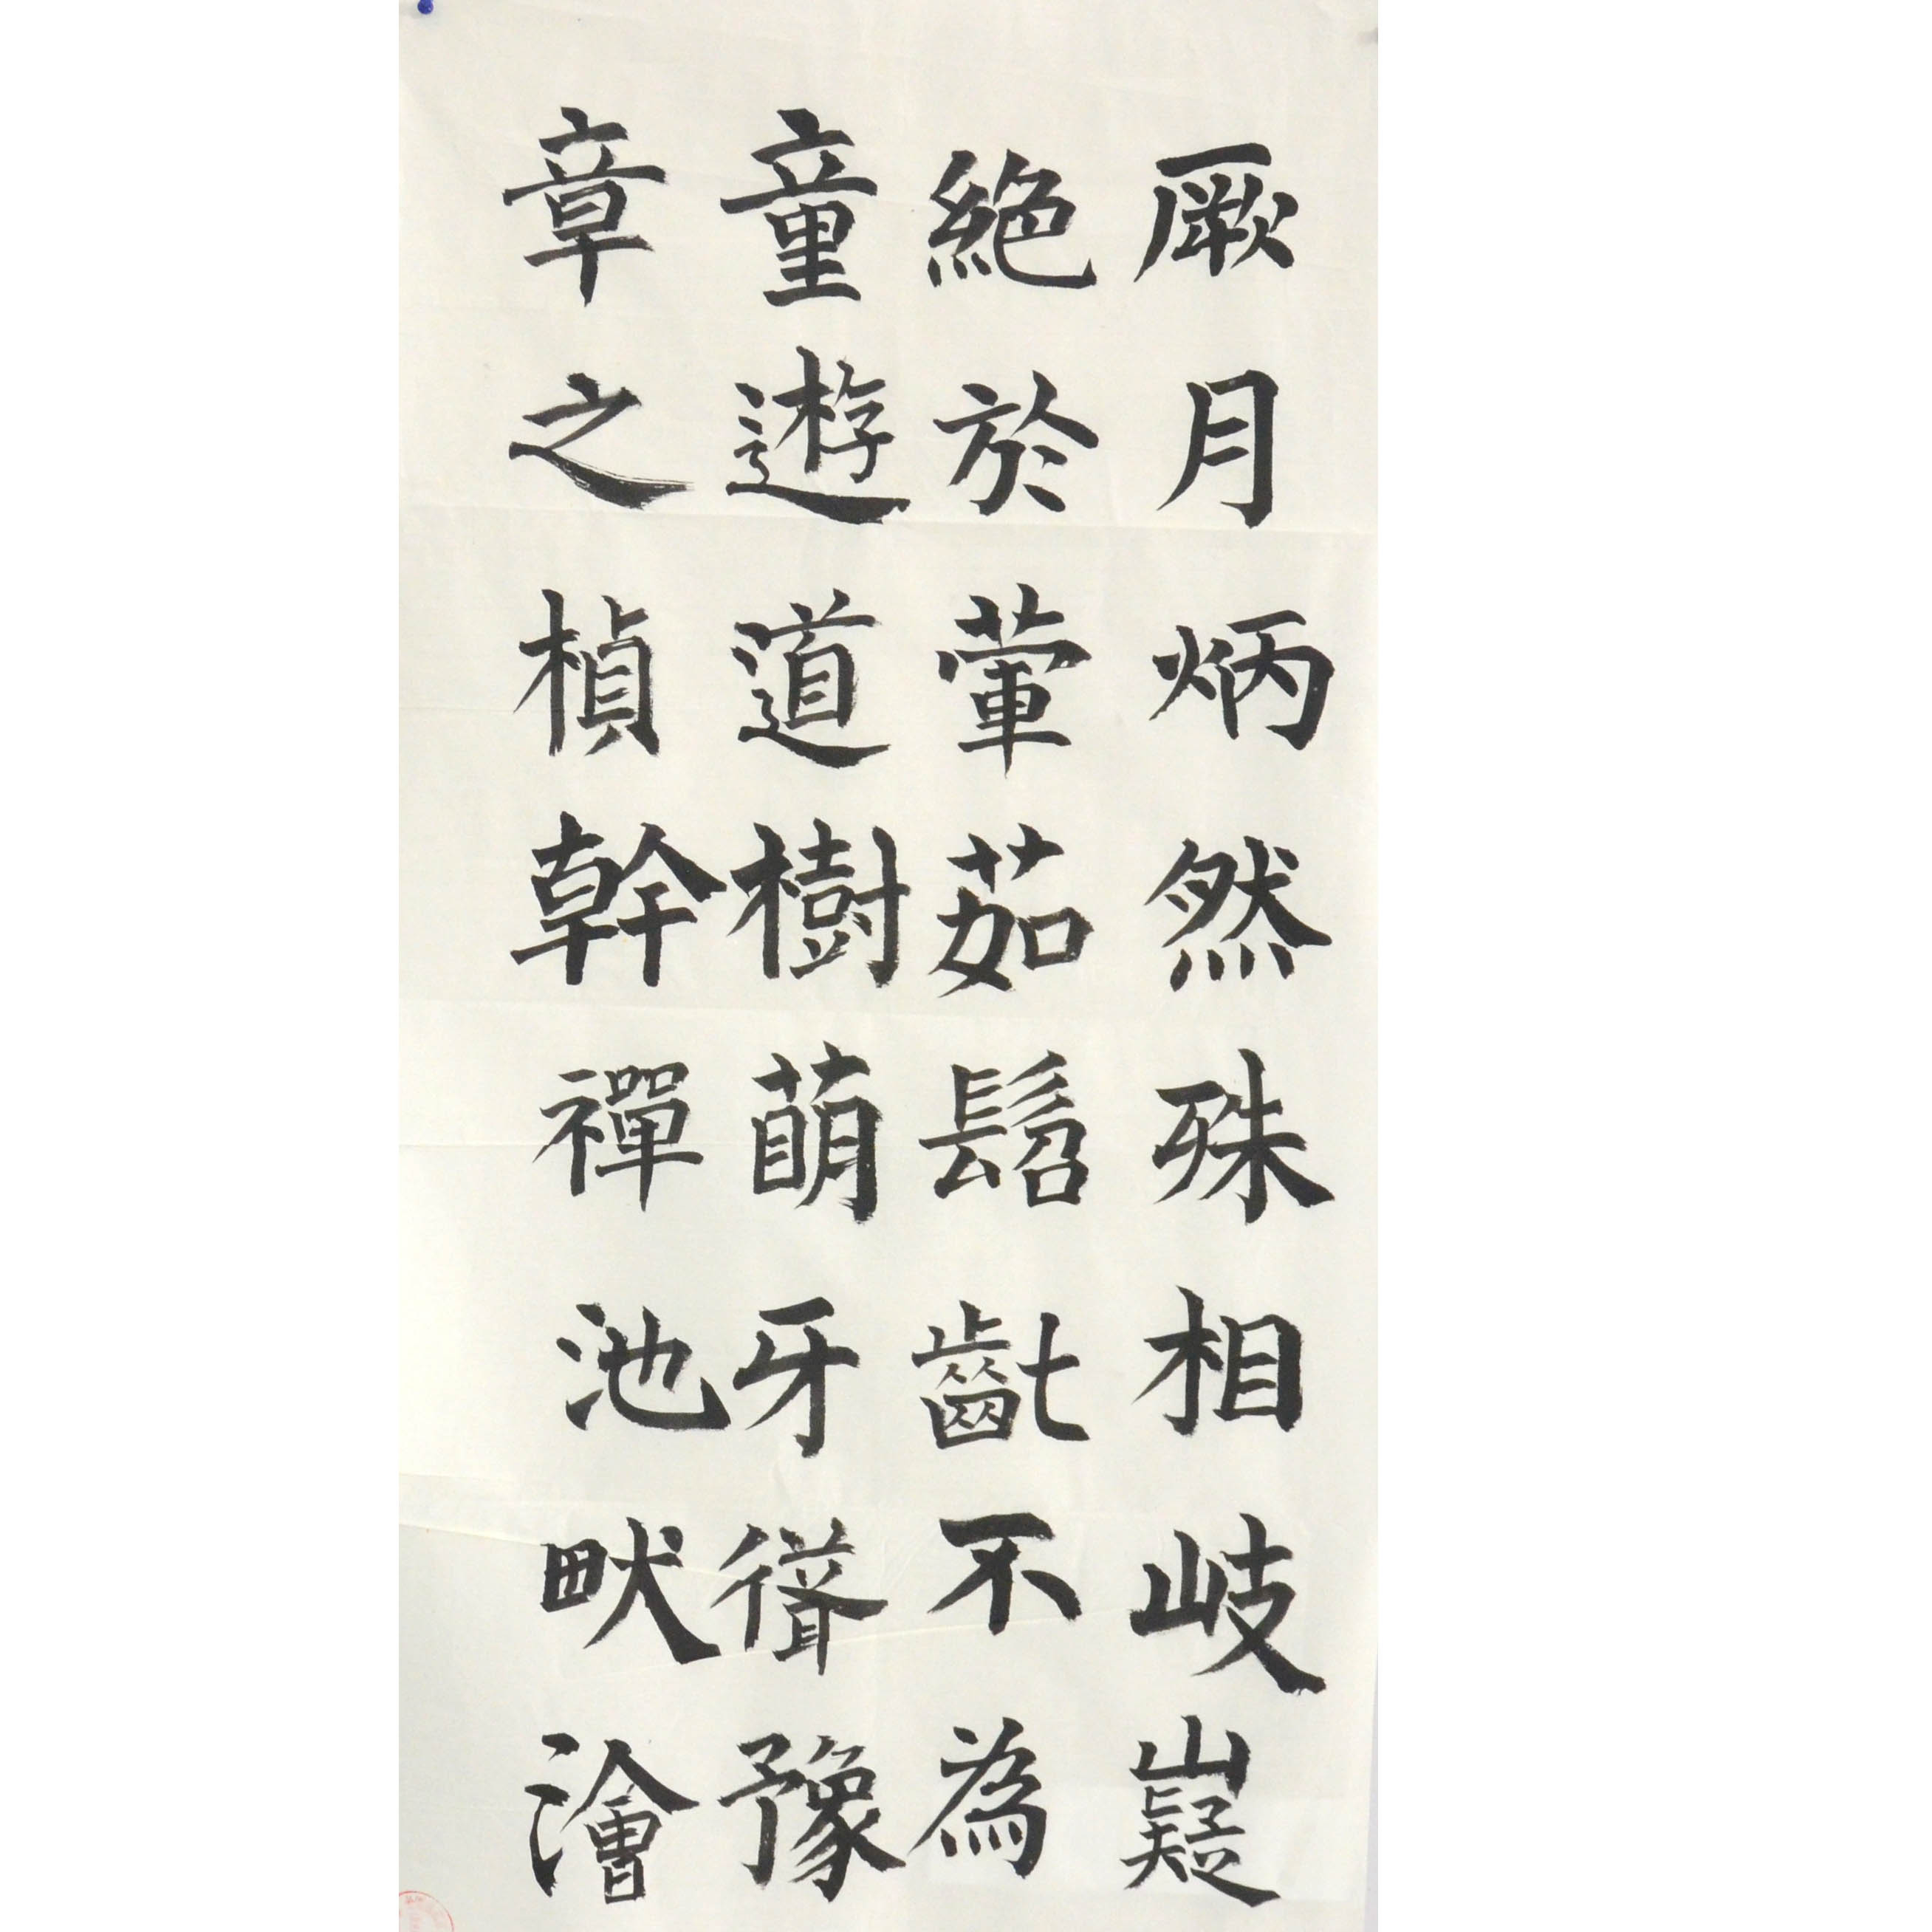 厥月炳然殊相岐嶷
絶於葷茹髫齔不為
童遊道樹萌牙聳豫
章之楨幹禪池畎澮